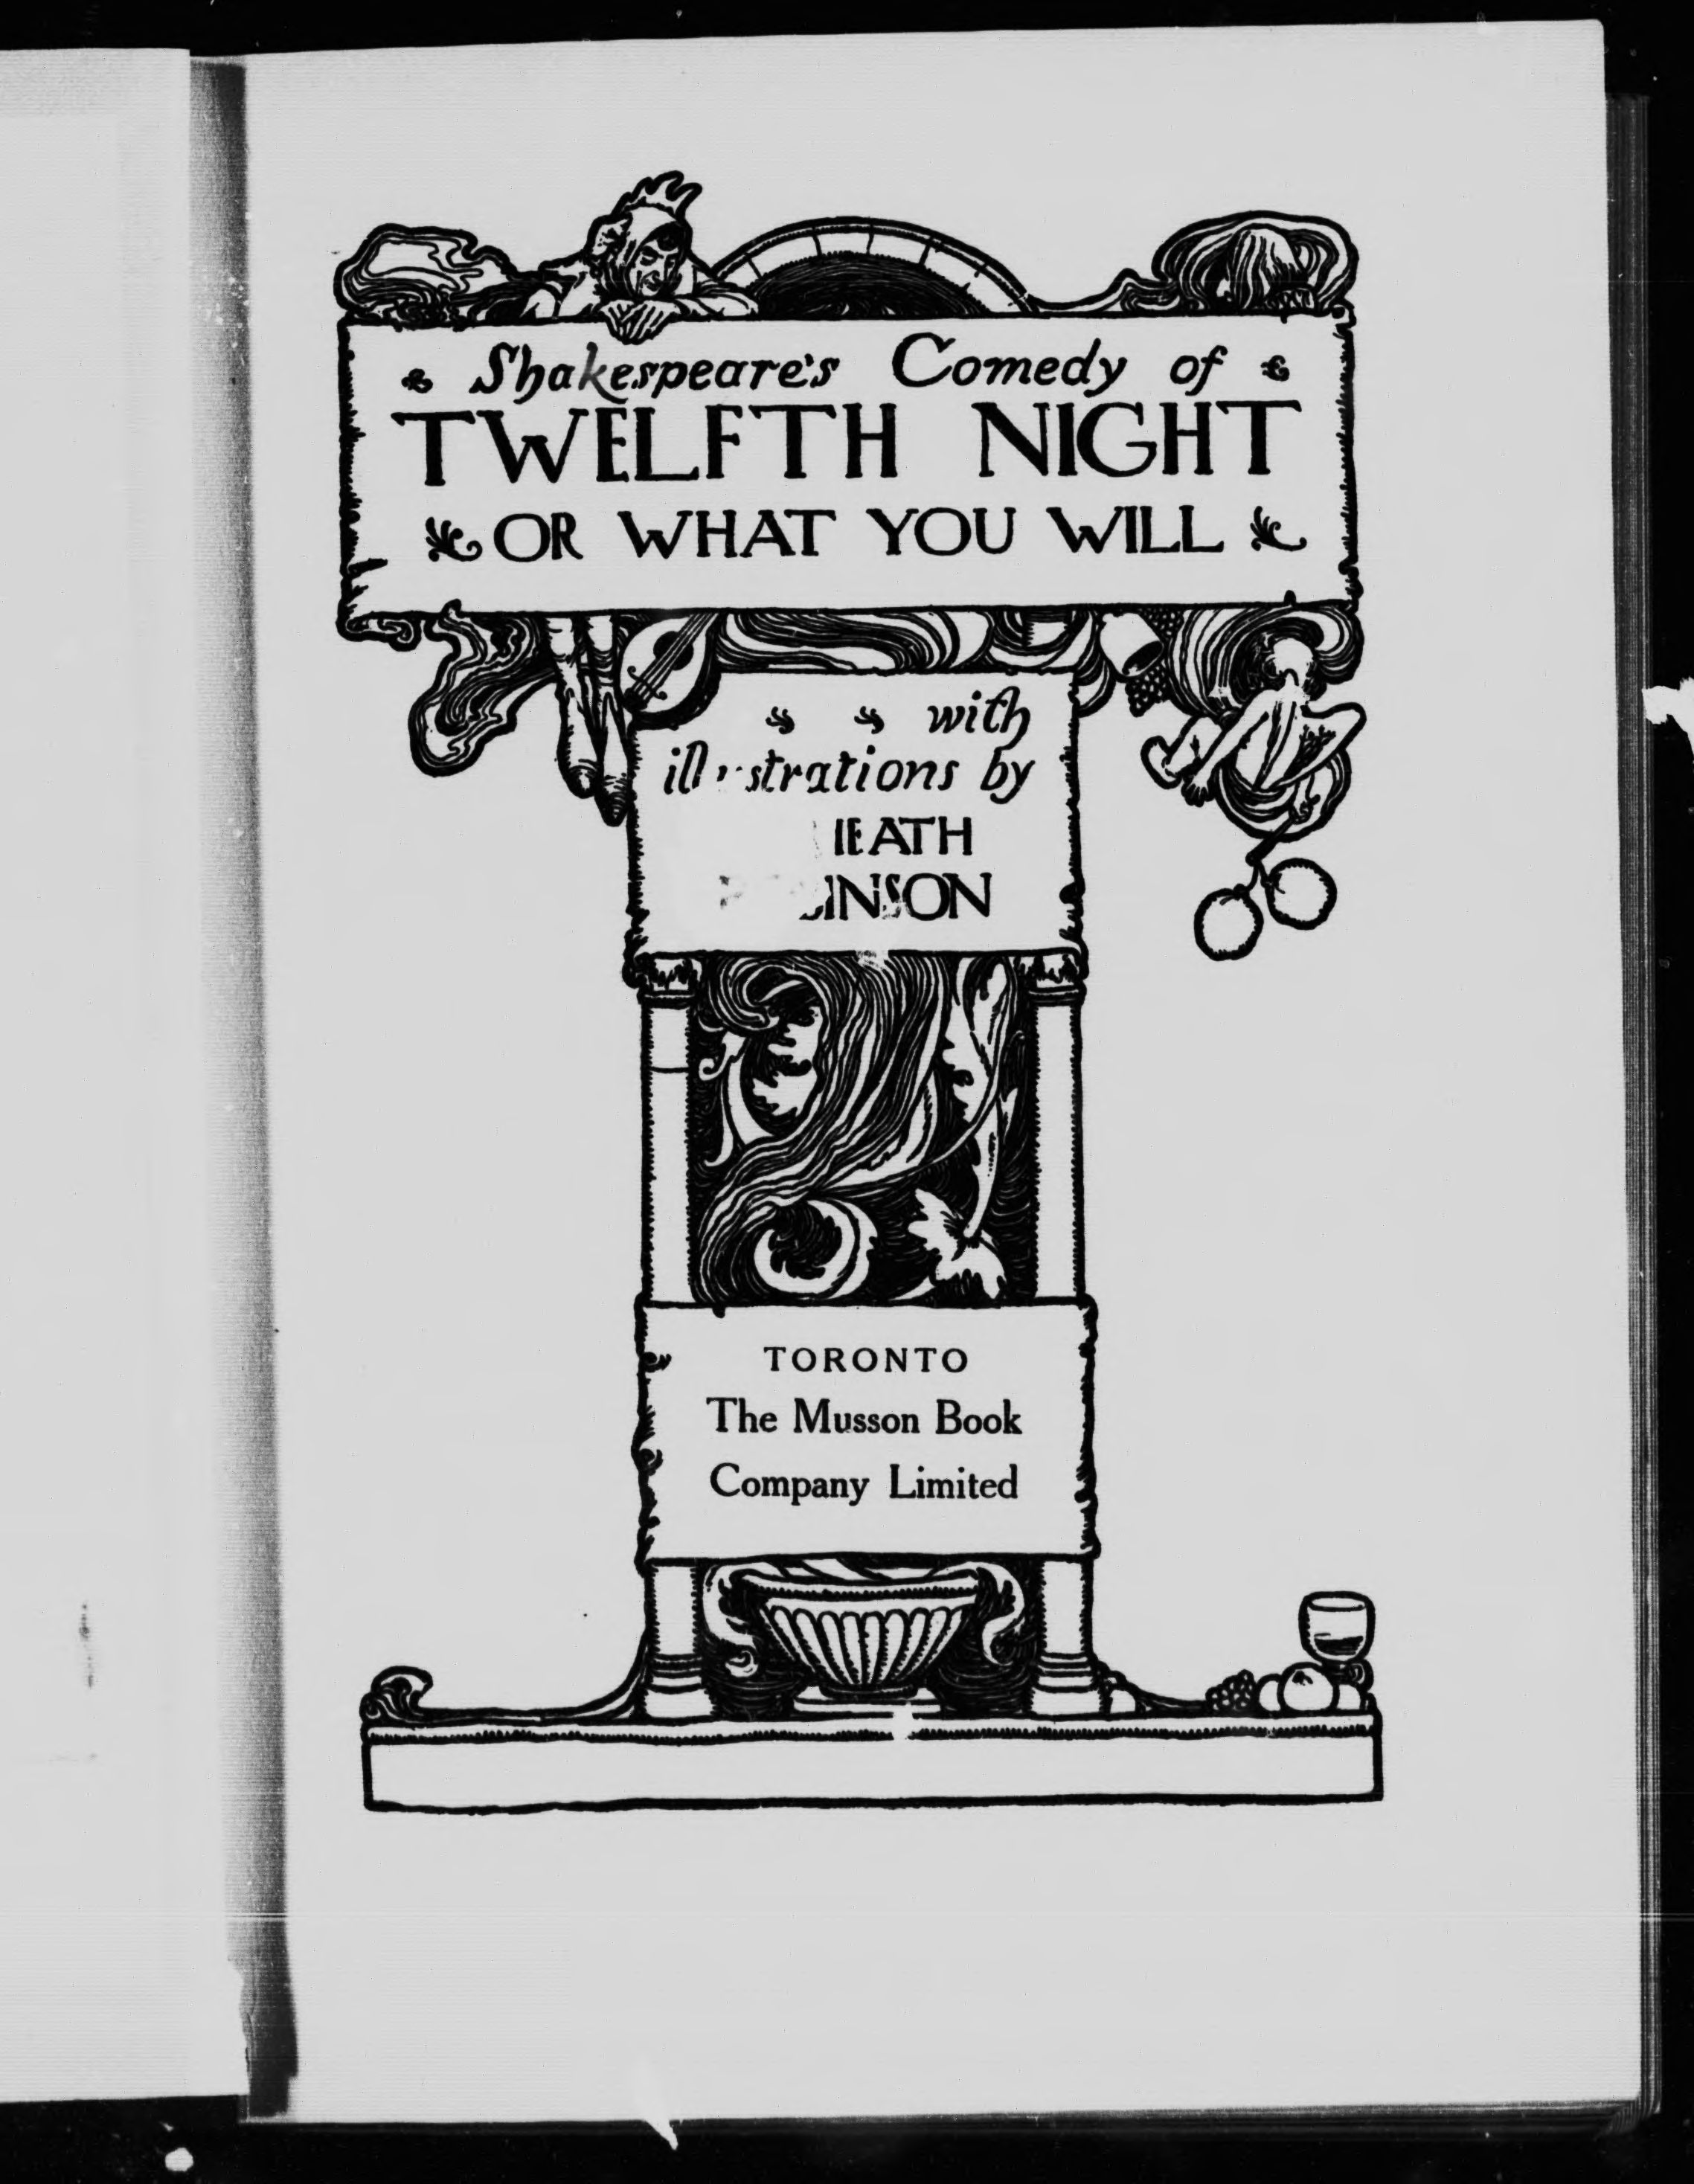 Shakespeare's Comedy of
TWELFTH NIGHT
OR WHAT YOU WILL
with
illustrations by
HEATH
TORONTO
The Musson Book
Company Limited